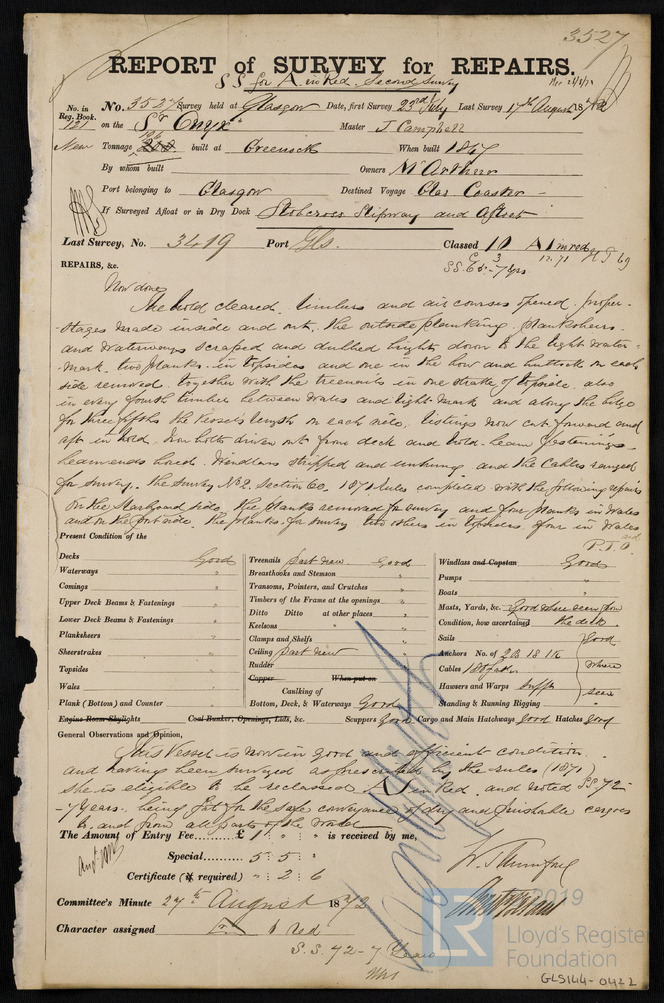 3527
REPORT of SURVEY for REPAIRS.
SS for A in Red Second Survey
No. in Reg. Book. No. 3527 Survey held at Glasgow Date, first Survey 23rd July Last Survey 17th August 1872
121 on the Sr "Onyx" Master J Campbell
New Tonnage 196 built at Greenock When built 1867
By whom built Owners McArthur
Port belonging to Glasgow Destined Voyage Glas. Coaster
If Surveyed Afloat or in Dry Dock Stobcross Slipway and Afloat
Last Survey, No. 3419 Port Gls. Classed 10 A 1 in red
SS. 7 yrs 12.71
REPAIRS, &c.
Now done
The hold cleared, timbers and air courses opened, proper
stages made inside and out, the outside planking, planksheers
and waterways scraped and dulled bright down to the light water
mark, two planks in topsides and one in the bow and buttock on each
side removed, together with the treenails in one strake of topside, also
in every fourth timber between wales and light mark and along the bilge
for three fifths the vessel's length on each side, listings now cut forward and
aft in hold. Iron bolts driven out from deck and hold beam fastenings
beam ends bored. Windlass stripped and unhung and the Cables ranged
for survey. The Survey No 2, Section 60, 1871 Rules completed with the following repairs
On the Starboard side, the planks removed for survey and four planks in wales
and on the port side, the planks for survey two others in topsides four in wales
and P.T.O.
Present Condition of the
Decks Good
Waterways "
Comings "
Upper Deck Beams & Fastenings "
Lower Deck Beams & Fastenings "
Planksheers "
Sheerstrakes "
Topsides "
Wales "
Plank (Bottom) and Counter "
Engine Room Skylights Coal Bunker, Openings, Lids, &c.
Treenails part new Good
Breasthooks and Stemson "
Transoms, Pointers, and Crutches "
Timbers of the Frame at the openings "
Ditto Ditto at other places "
Keelsons "
Clamps and Shelfs "
Ceiling part new "
Rudder "
Copper When put on
Caulking of
Bottom, Deck, & Waterways Good
Scuppers Good Cargo and Main Hatchways good Hatches good
Windlass and Capstan Good
Pumps "
Boats "
Masts, Yards, &c. Good where seen from
Condition, how ascertained the deck
Sails Good
Anchors No. of 2B 1S 1K
Cables where
Hawsers and Warps Sufft seen
Standing & Running Rigging
General Observations and Opinion,
This Vessel is now in good and efficient condition
and having been surveyed as prescribed by the rules (1871)
she is eligible to be reclassed A in Red, and noted SS 72-
7 years, being fit for the safe conveyance of dry and perishable cargoes
to and from all parts of the world
The Amount of Entry Fee £ 1 " " is received by me,
Special 5 : 5 : "
Certificate (if required) " : 2 : 6
Committee's Minute 27th August 1872
Character assigned A red
S.S. 72 - 7 Years
2019
LR
Lloyd's Register
Foundation
GLS144-0422